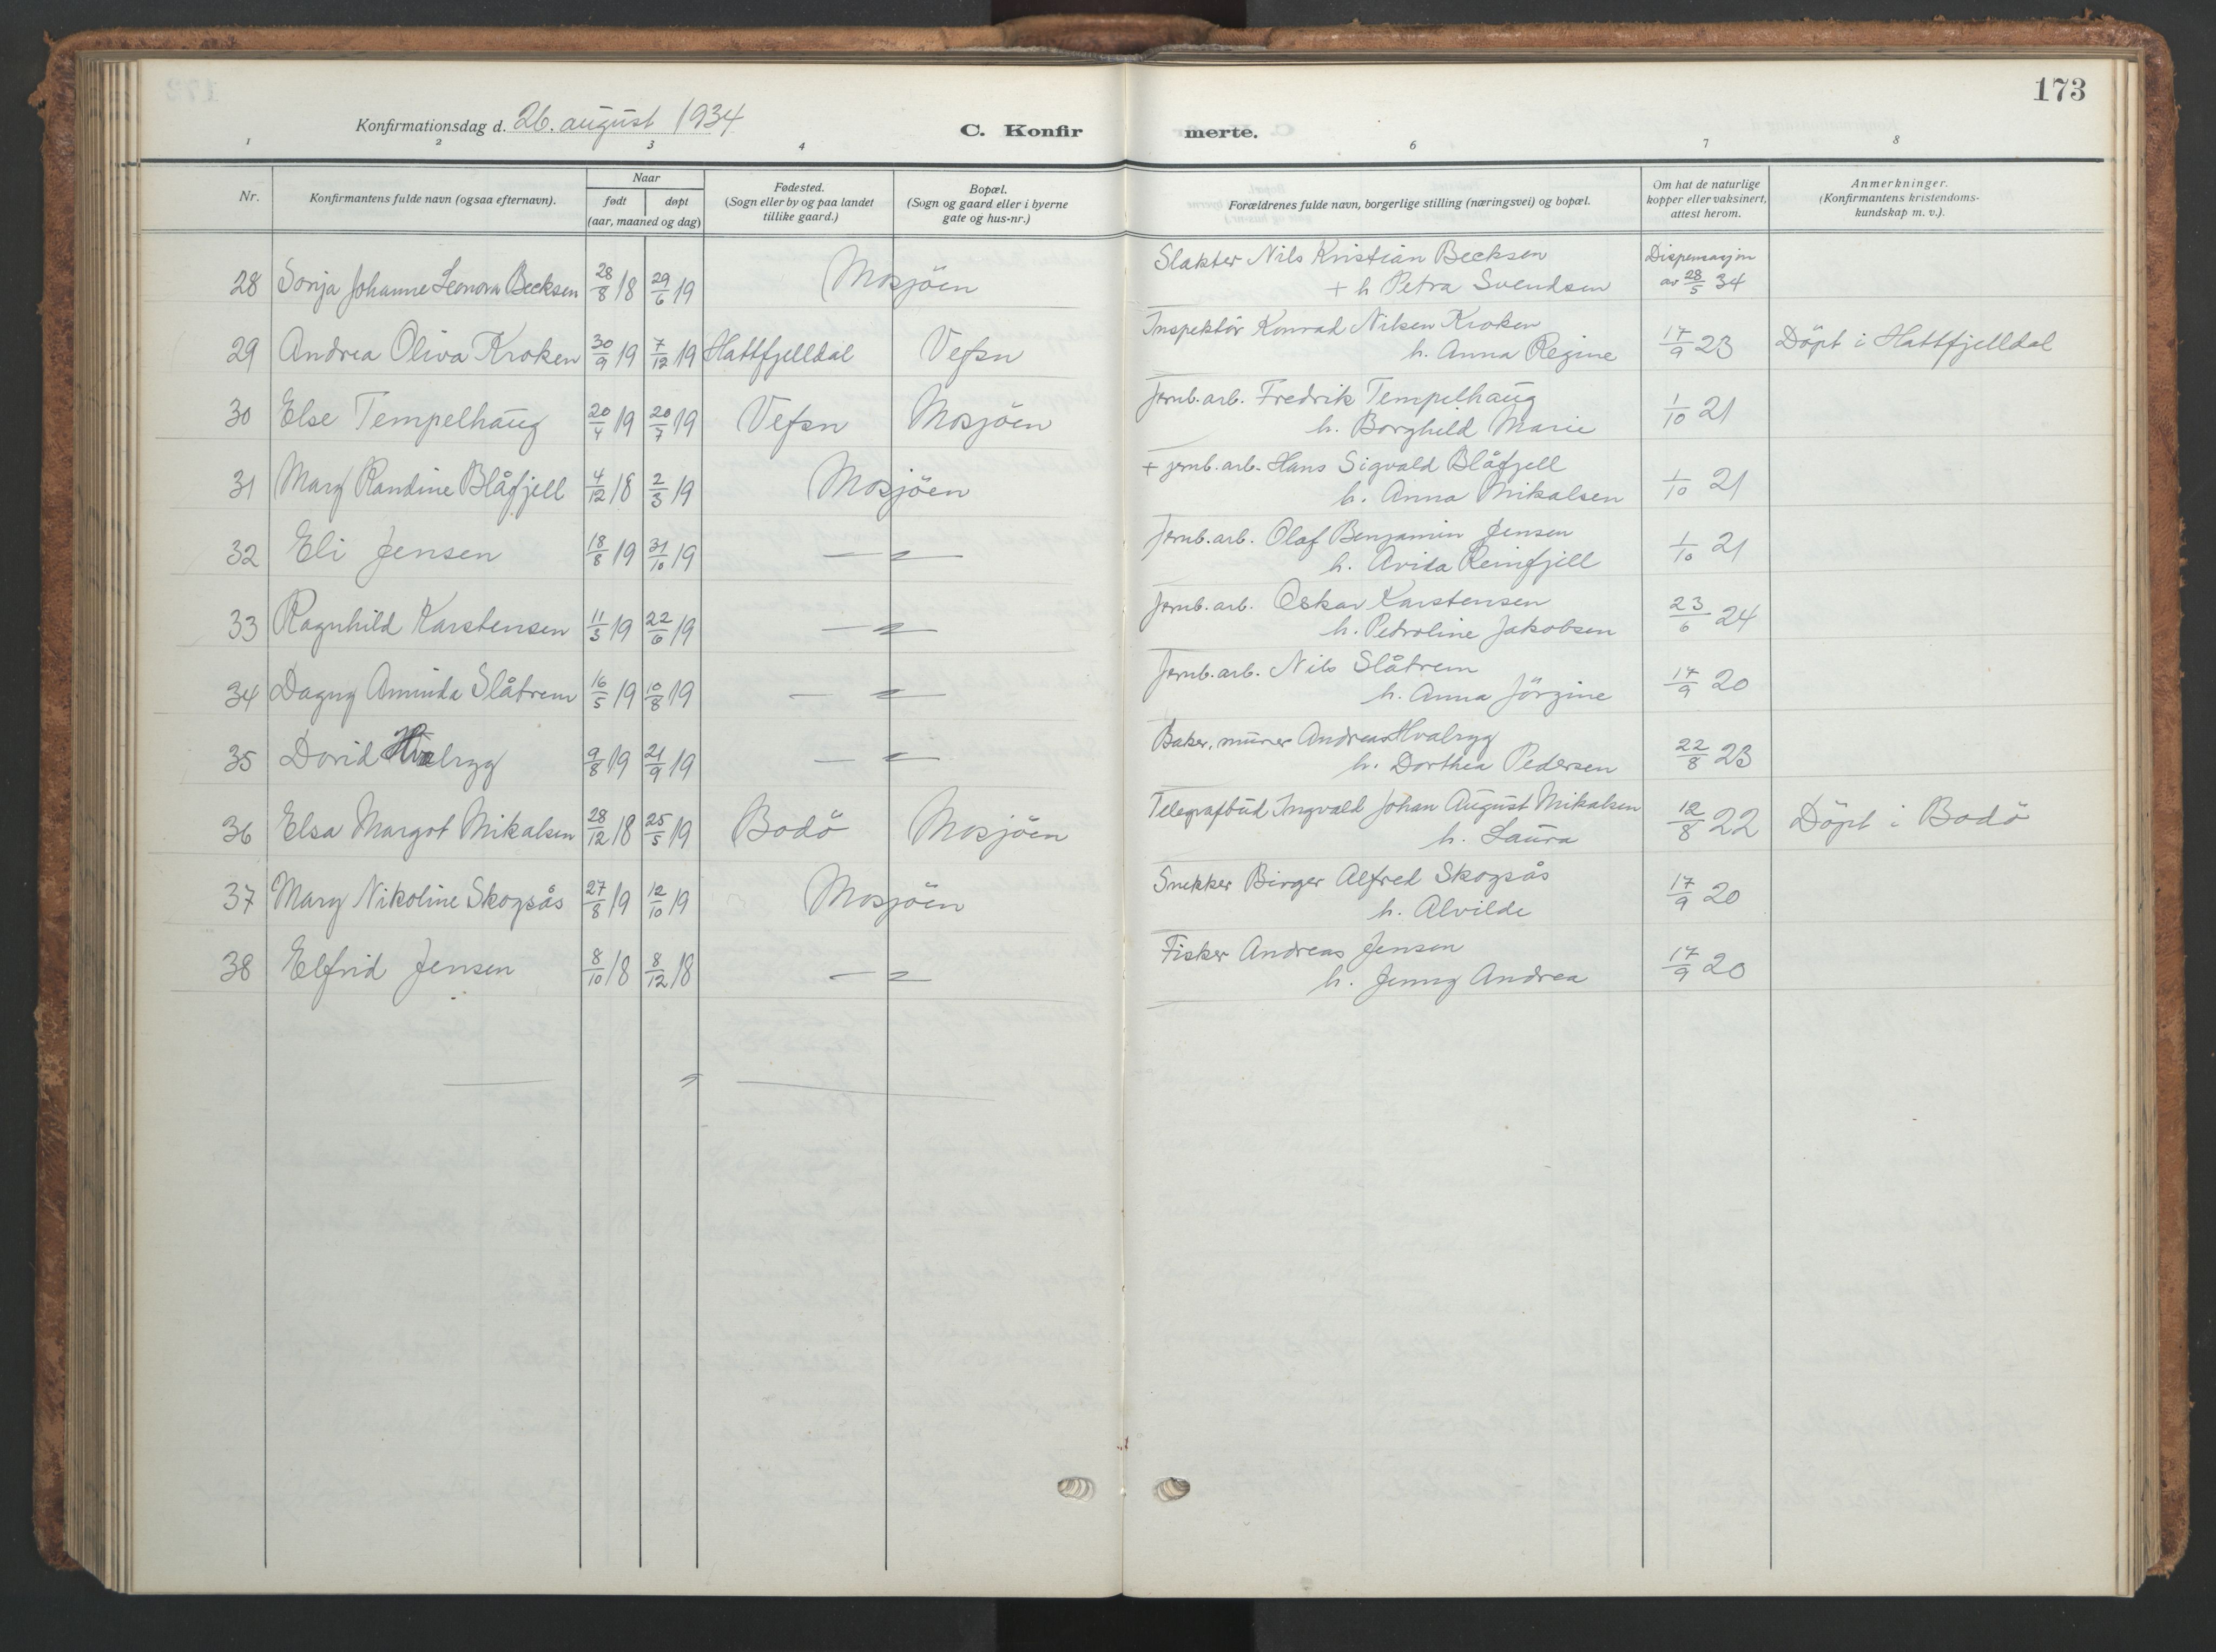 173
Konfirmationsdag d. 26. august 1934
C. Konfir merte.
1 2 3 4 6 7 8
Nr. Konfirmantens fulde navn (ogsaa efternavn). Naar født døpt (aar, maaned og dag) Fødested. (Sogn eller by og paa landet tillike gaard.) Bopæl. (Sogn og gaard eller i byerne gate og hus-nr.) Forældrenes fulde navn, borgerlige stilling (næringsvei) og bopæl. Om hat de naturlige kopper eller vaksinert, attest herom. Anmerkninger. (Konfirmantens kristendoms-kundskap m. v.).
28 Sonja Johanne Leonora Becksen 28/8 18 29/6 19 Mosjöen Slakter Nils Kristian Becksen Dispensasjon
+ h Petra Svendsen av 28/5 34
29 Andrea Oliva Kroken 30/9 19 7/12 19 Hattfjelldal Vefsn Inspektör Konrad Nilsen Kroken
h. Anna Regine 17/9 23 Döpt i Hattfjelldal
30 Else Tempelhaug 20/4 19 20/7 19 Vefsn Mosjöen Jernb.arb. Fredrik Tempelhaug
h. Borghild Marie 1/10 21
31 Mary Randine Blåfjell 4/12 18 2/3 19 Mosjöen + jernb.arb. Hans Sigvald Blåfjell
h. Anna Mikalsen 1/10 21
32 Eli Jensen 18/8 19 31/10 19 — " — Jernb.arb. Olaf Benjamin Jensen
h. Avida Reinfjell 1/10 21
33 Ragnhild Karstensen 11/3 19 22/6 19 — " — Jernb.arb. Oskar Karstensen
h. Petroline Jakobsen 23/6 24
34 Dagny Aminda Slåtrem 16/5 19 10/8 19 — " — Jernb.arb. Nils Slåtrem
h. Anna Jörgine 17/9 20
35 Dorid Hvalryg 9/8 19 21/9 19 — " — Baker, murer Andreas Hvalryg
h. Dorthea Pedersen 22/8 23
36 Elsa Margot Mikalsen 28/12 18 25/5 19 Bodö Mosjöen Telegrafbud Ingvald Johan August Mikalsen
h. Laura 12/8 22 Döpt i Bodö
37 Mary Nikoline Skogsås 27/8 19 12/10 19 Mosjöen Snekker Birger Alfred Skogsås
h. Alvilde 17/9 20
38 Elfrid Jensen 8/10 18 8/12 18 — " — Fisker Andreas Jensen
h. Jenny Andrea 17/9 20